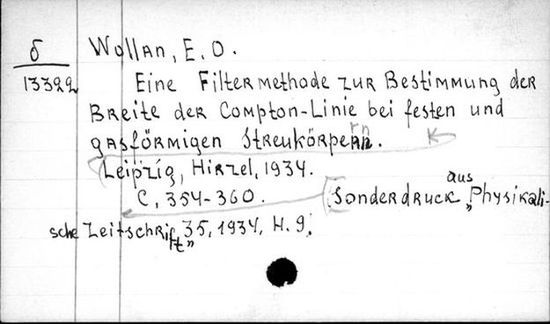 δ
13322
Wollan, E. O.
Eine Filtermethode zur Bestimmung der
Breite der Compton-Linie bei festen und
gasförmigen Streukörpern.
(Leipzig, Hirzel, 1934.
C, 354-360. (Sonderdruck aus „Physikali-
sche Zeitschrift" 35, 1934, H. 9.